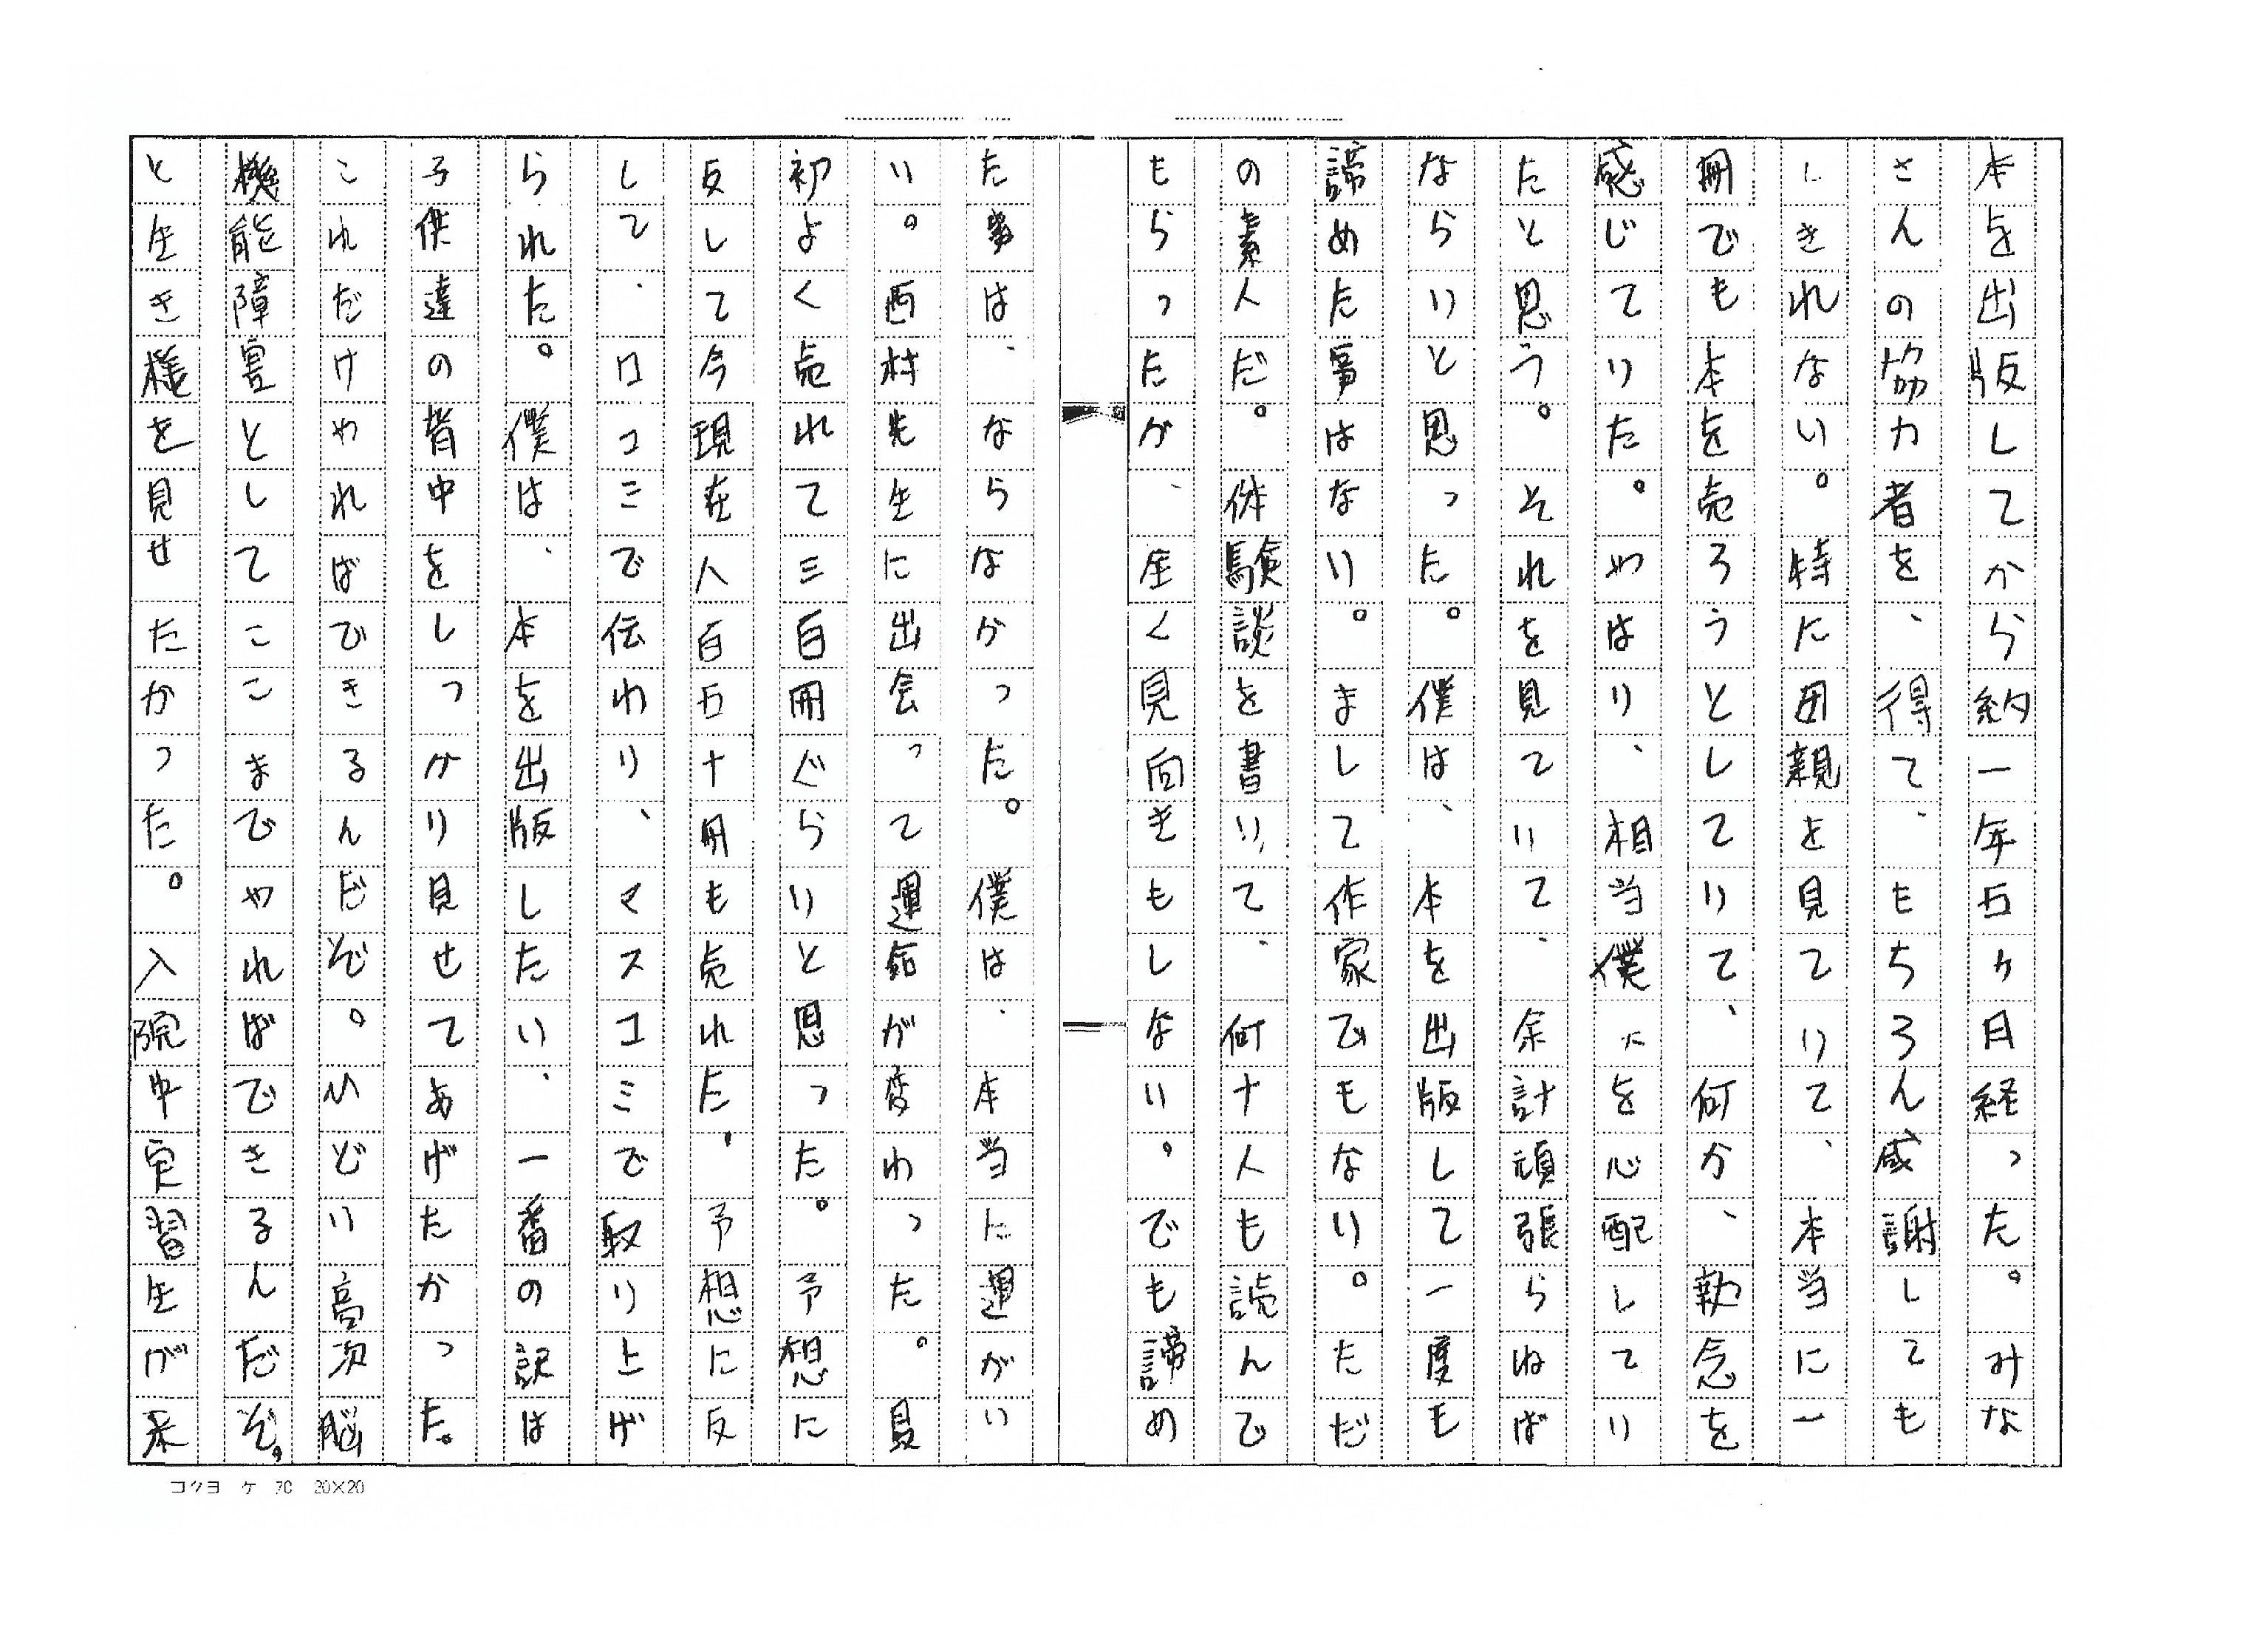 本を出版してから約一年五ヶ月経った。みな
さんの協力者を、得て、もちろん感謝しても
しきれない。特に母親を見ていて、本当に一
冊でも本を売ろうとしていて、何か、執念を
感じていた。やはり、相当僕を心配してい
たと思う。それを見ていて、余計頑張らねば
ならいと思った。僕は、本を出版して一度も
諦めた事はない。まして作家でもない。ただ
の素人だ。体験談を書いて、何十人も読んで
もらったが、全く見向きもしない。でも諦め
た事は、ならなかった。僕は、本当に運がい
い。西村先生に出会って運命が変わった。最
初よく売れて三百冊ぐらいと思った。予想に
反して今現在八百五十冊も売れた。予想に反
して、口コミで伝わり、マスコミで取り上げ
られた。僕は、本を出版したい、一番の訳は
子供達の背中をしっかり見せてあげたかった。
これだけやればできるんだぞ。ひどい高次脳
機能障害としてここまでやればできるんだぞ。
と生き様を見せたかった。入院中実習生が来
コクヨ ケ 70 20×20